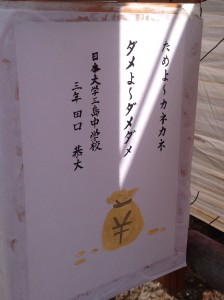 ためよ～カネカネ
ダメよ～ダメダメ
日本大学三島中学校
三年 田口 恭大
¥